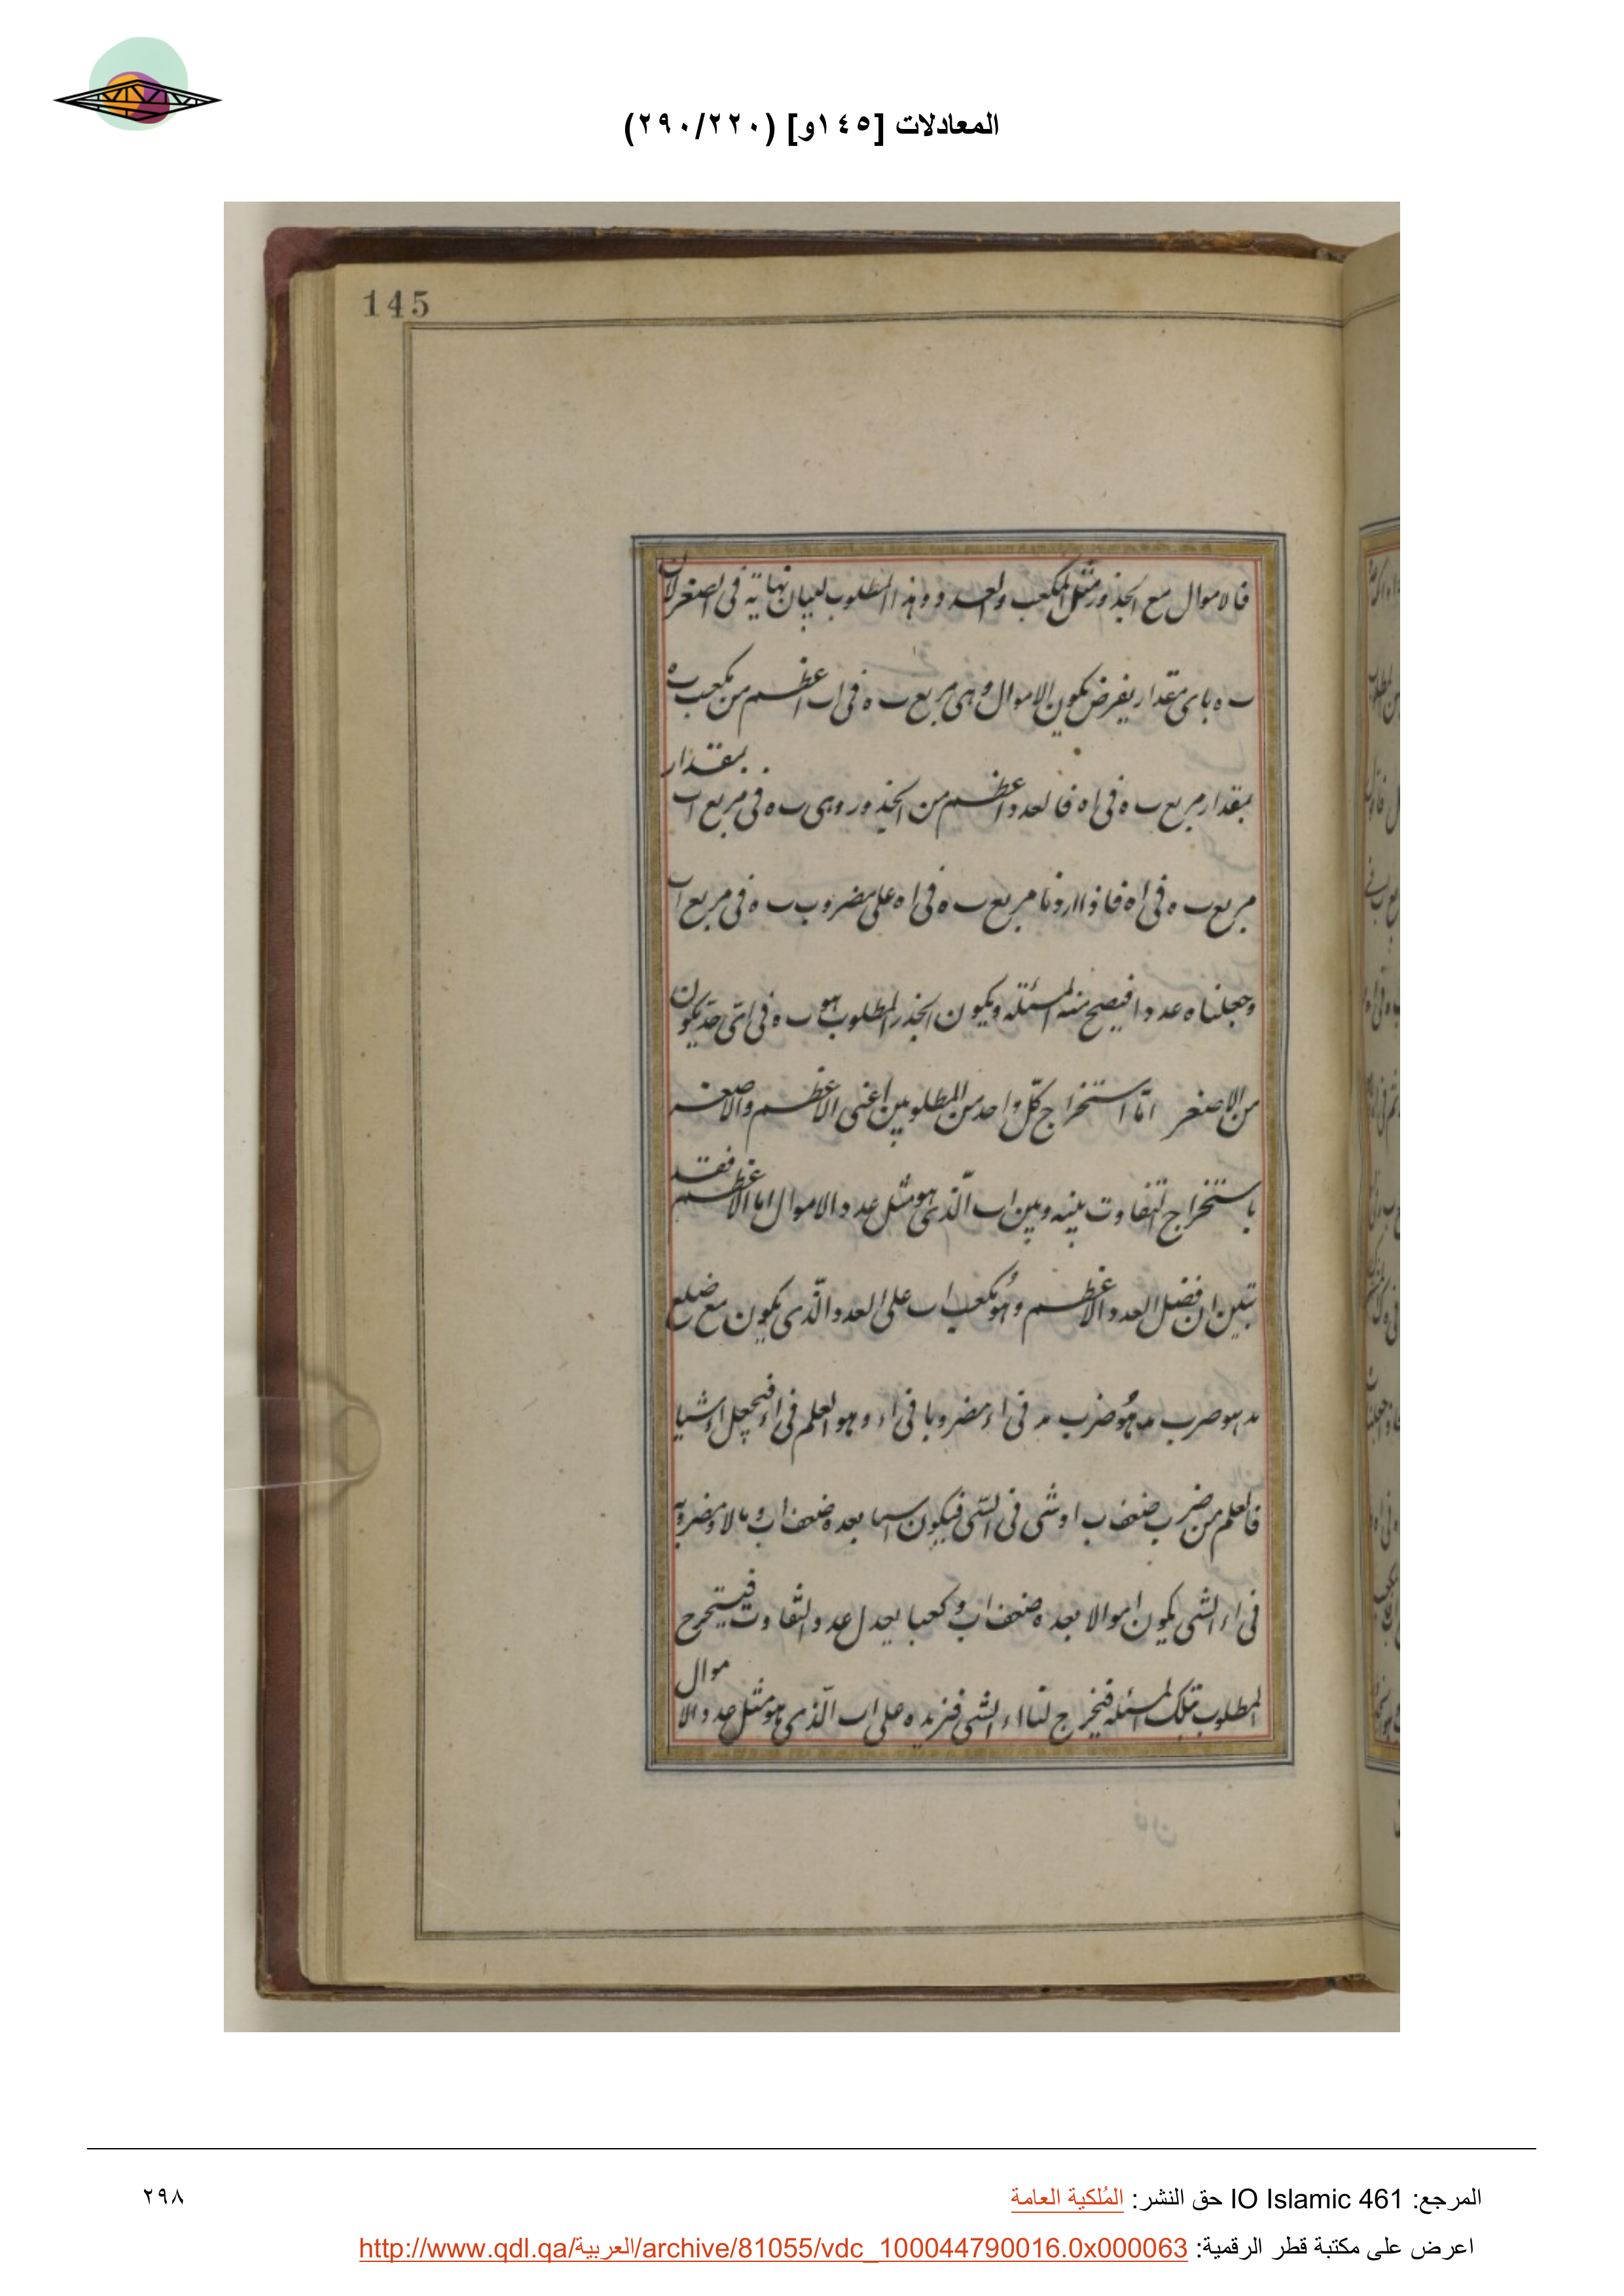 المعادلات [١٤٥و] (٢٩٠/٢٢٠)
145
فالاموال مع الجذور مثل المكعب والعدد وهذا المطلوب ليبان نهاية فى الصغر لان
ب ه باى مقدار يفرض يكون الاموال وهى مربع ب ه فى اب اعظم من مكعب ب ه
بمقدار مربع ب ه فى اه فالعدد اعظم من الجذور وهى ب ه فى مربع اب بمقدار
مربع ب ه فى اه فاذا اردنا مربع ب ه فى اه على مضروب ب ه فى مربع اب
وجعلناه عددا فيصح منه المسئله ويكون الجذر المطلوب هو ب ه فى اى حد يكون
من الاصغر اما استخراج كل واحد من المطلوبين اعنى الاعظم والاصغر
باستخراج التفاوت بينه وبين اب الذى هو مثل عدد الاموال اما الاعظم فقد
تبين ان فضل العدد الاعظم وهو مكعب اب على العدد الذى يكون مع ضلع
هو ضرب هو ضرب فى مضروبا فى وهو العلم فى فيجعل اشيا
فالعلم من ضرب ضعف اب او شى فى الشى فيكون اسيا بعده ضعف اب و مالا ومضروبه
فى اء الشى يكون اموالا بعده ضعف اب و كعبا يعدل عدد التفاوت فيستخرج
المطلوب بتلك المسئله فيخرج لنا اء الشى فنزيده على اب الذى هو مثل عدد الاموال
المرجع: IO Islamic 461 حق النشر: المُلكية العامة
٢٩٨
اعرض على مكتبة قطر الرقمية: http://www.qdl.qa/العربية/archive/81055/vdc_100044790016.0x000063